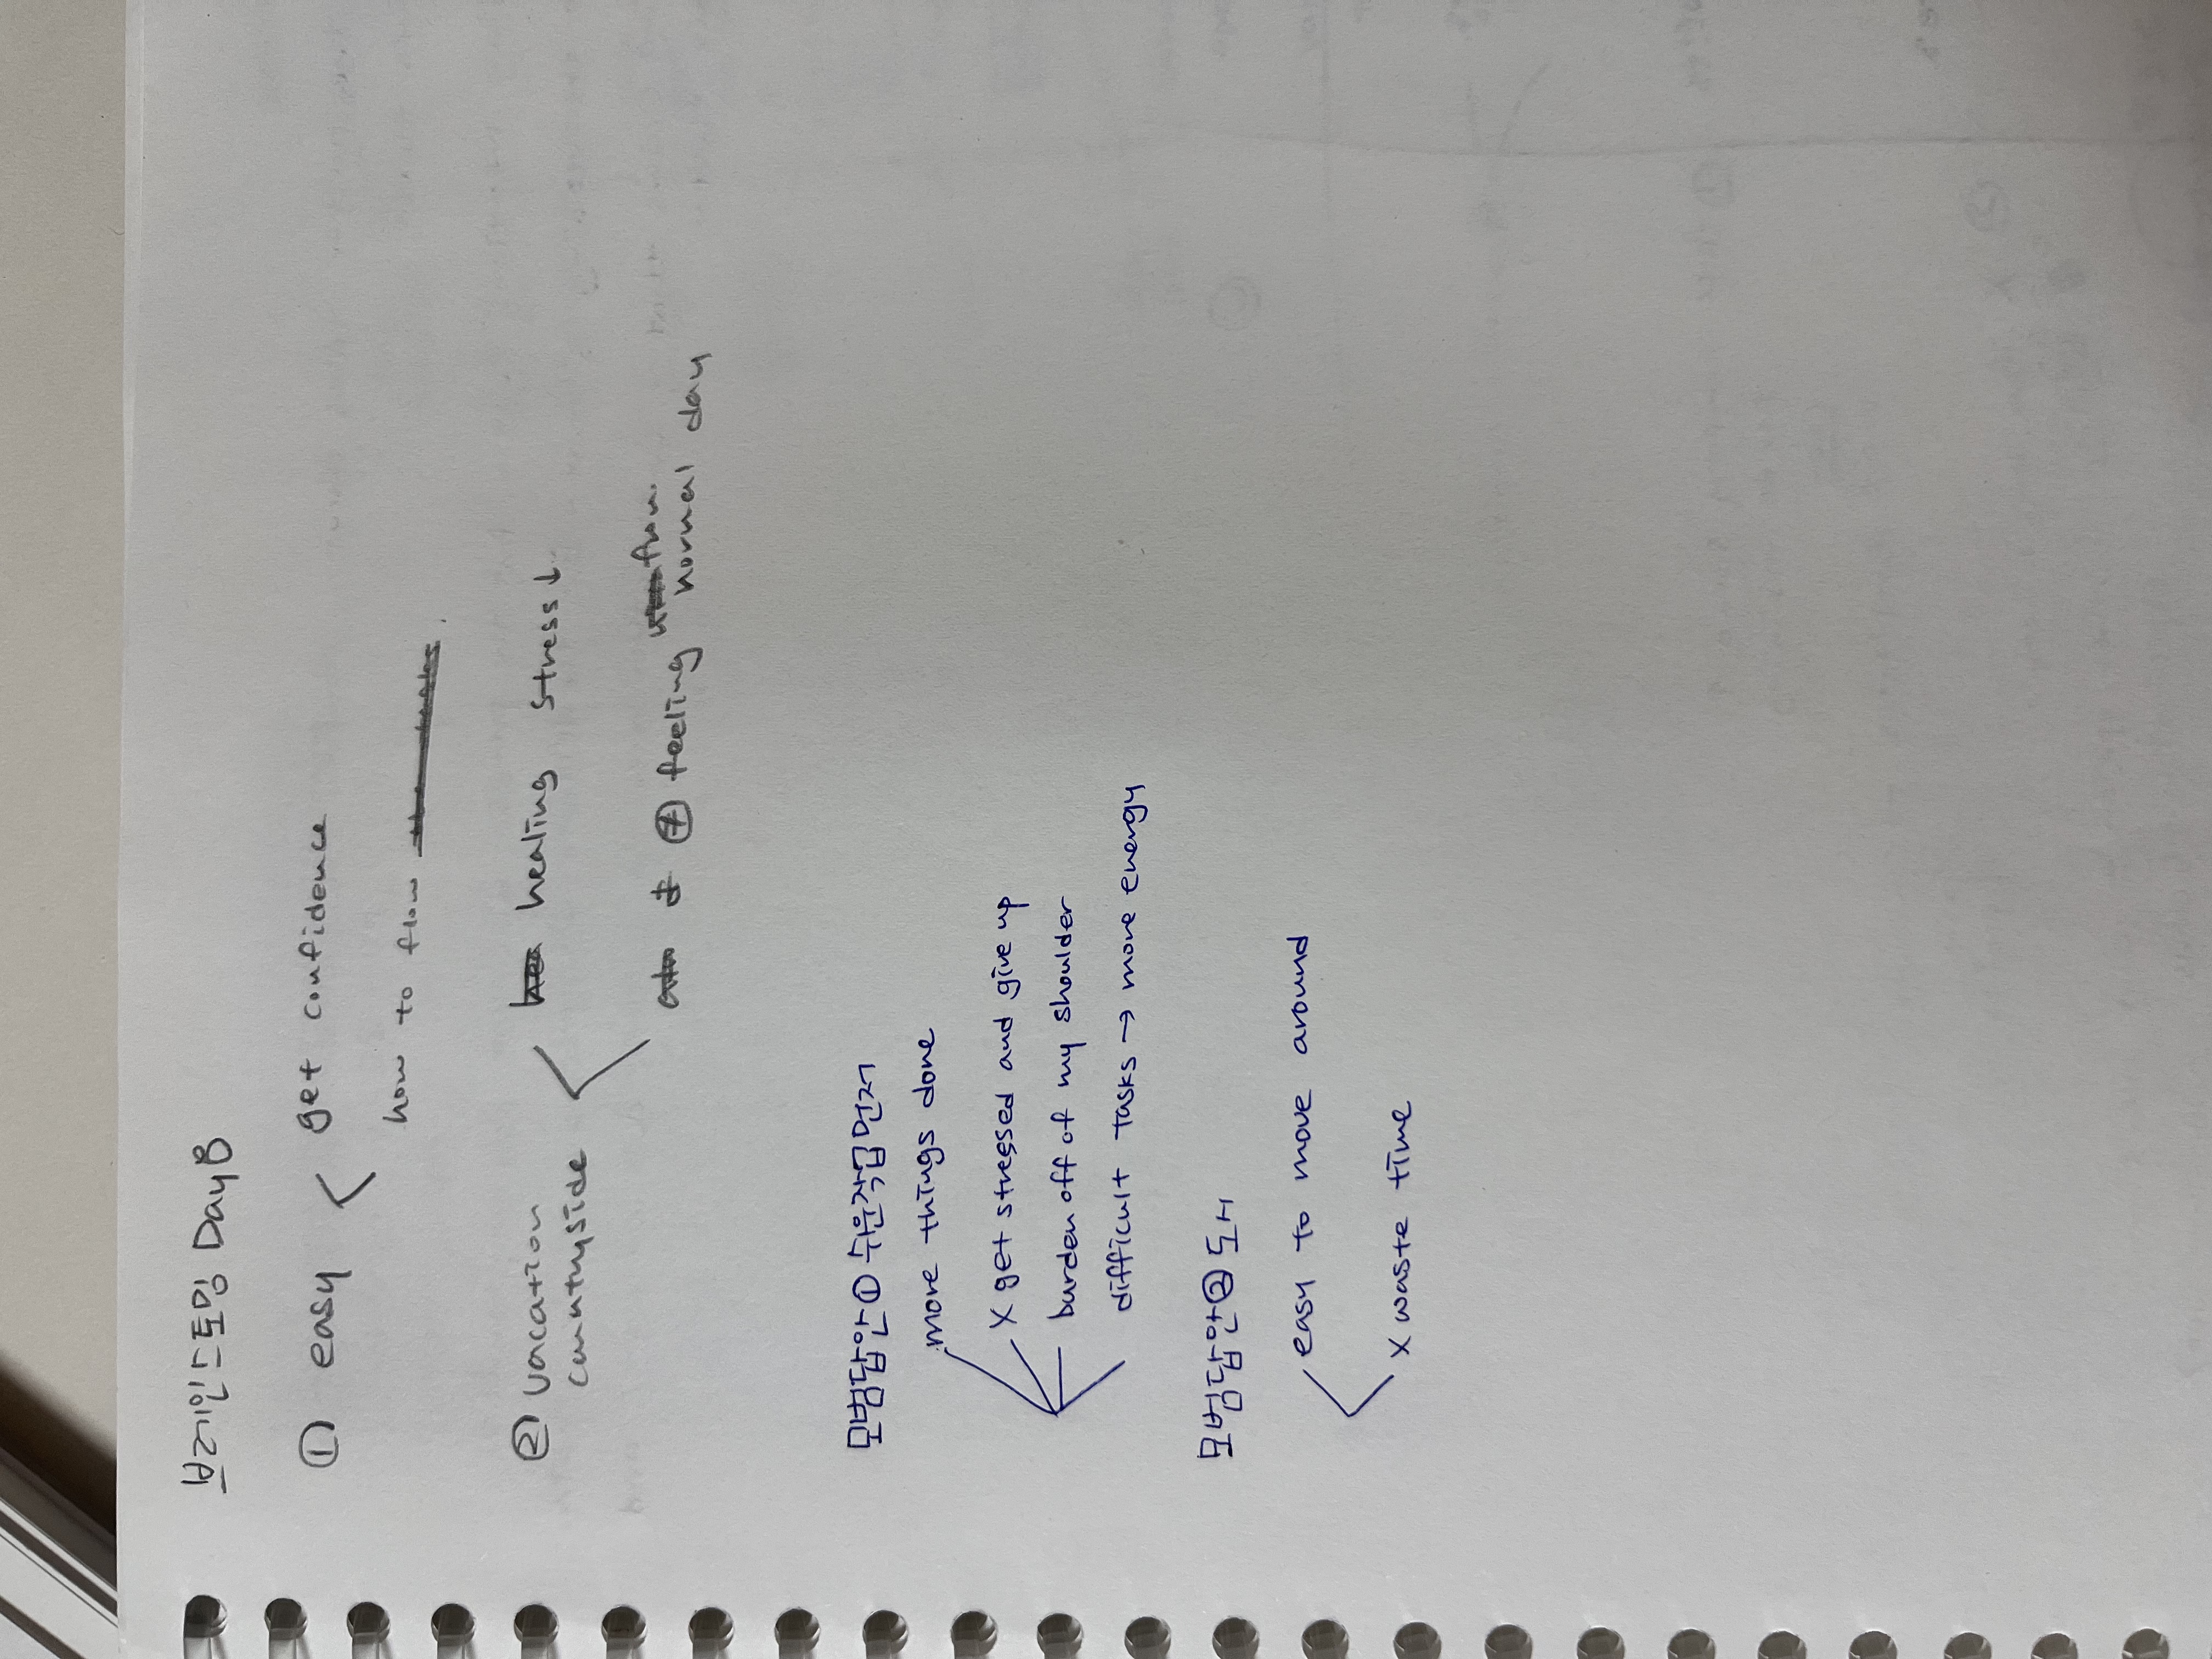 브레인스토밍 Day8
① easy < get confidence
how to flow
② vacation
countryside
healing stress↓
≠ feeling from
normal day
모범답안① 쉬운작업먼저
more things done
X get stressed and give up
burden off of my shoulder
difficult tasks → more energy
모범답안② 도시
easy to move around
X waste time